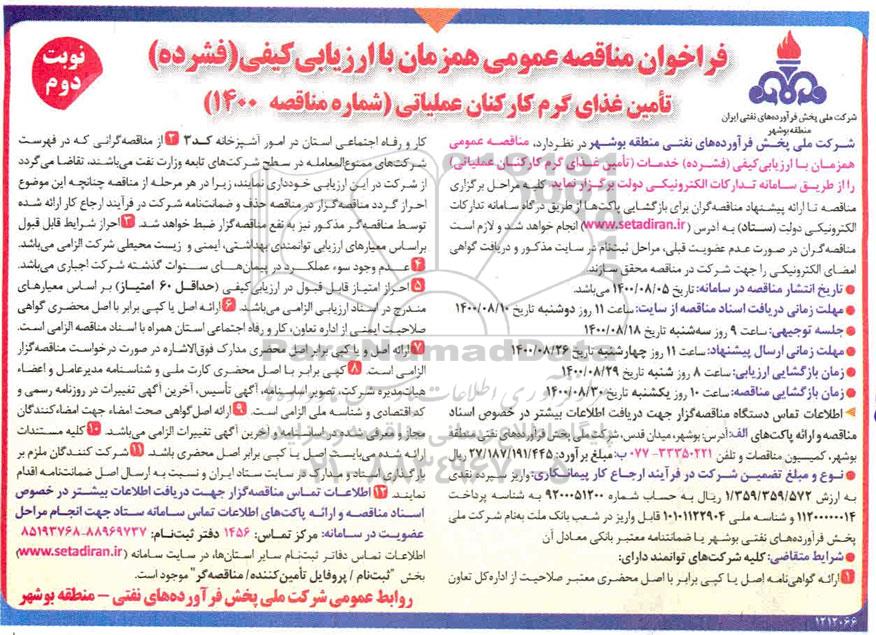 فراخوان مناقصه عمومی همزمان با ارزیابی کیفی (فشرده)
تأمین غذای گرم کارکنان عملیاتی (شماره مناقصه ۱۴۰۰)
نوبت
دوم
شرکت ملی پخش فرآورده‌های نفتی ایران
منطقه بوشهر
شرکت ملی پخش فرآورده‌های نفتی منطقه بوشهر در نظر دارد، مناقصه عمومی
همزمان با ارزیابی کیفی (فشرده) خدمات (تأمین غذای گرم کارکنان عملیاتی)
را از طریق سامانه تدارکات الکترونیکی دولت برگزار نماید. کلیه مراحل برگزاری
مناقصه تا ارائه پیشنهاد مناقصه‌گران برای بازگشایی پاکت‌ها از طریق درگاه سامانه تدارکات
الکترونیکی دولت (ستاد) به آدرس (www.setadiran.ir) انجام خواهد شد و لازم است
مناقصه‌گران در صورت عدم عضویت قبلی، مراحل ثبت‌نام در سایت مذکور و دریافت گواهی
امضای الکترونیکی را جهت شرکت در مناقصه محقق سازند.
● تاریخ انتشار مناقصه در سامانه: تاریخ ۱۴۰۰/۰۸/۰۵ می‌باشد.
● مهلت زمانی دریافت اسناد مناقصه از سایت: ساعت ۱۱ روز دوشنبه تاریخ ۱۴۰۰/۰۸/۱۰
● جلسه توجیهی: ساعت ۹ روز سه‌شنبه تاریخ ۱۴۰۰/۰۸/۱۸
● مهلت زمانی ارسال پیشنهاد: ساعت ۱۱ روز چهارشنبه تاریخ ۱۴۰۰/۰۸/۲۶
● زمان بازگشایی ارزیابی: ساعت ۸ روز شنبه تاریخ ۱۴۰۰/۰۸/۲۹
● زمان بازگشایی مناقصه: ساعت ۱۰ روز یکشنبه تاریخ ۱۴۰۰/۰۸/۳۰
اطلاعات تماس دستگاه مناقصه‌گزار جهت دریافت اطلاعات بیشتر در خصوص اسناد
مناقصه و ارائه پاکت‌های الف: آدرس: بوشهر، میدان قدس، شرکت ملی پخش فرآورده‌های نفتی منطقه
بوشهر، کمیسیون مناقصات و تلفن ۳۳۳۵۰۲۲۱-۰۷۷ ب: مبلغ برآورد: ۲۷/۱۸۷/۱۹۱/۴۴۵ ریال
● نوع و مبلغ تضمین شرکت در فرآیند ارجاع کار پیمانکاری: واریز سپرده نقدی
به ارزش ۱/۳۵۹/۳۵۹/۵۷۲ ریال به حساب شماره ۹۲۰۰۰۵۱۲۰۰ به شناسه پرداخت
۱۱۲۰۰۰۰۰۰۱۴ و شناسه ملی ۱۰۱۰۱۱۲۲۹۰۴ قابل واریز در شعب بانک ملت به‌نام شرکت ملی
پخش فرآورده‌های نفتی بوشهر یا ضمانتنامه معتبر بانکی معادل آن
● شرایط متقاضی: کلیه شرکت‌های توانمند دارای:
۱ ارائه گواهی‌نامه اصل یا کپی برابر با اصل محضری معتبر صلاحیت از اداره کل تعاون
کار و رفاه اجتماعی استان در امور آشپزخانه کد ۳ ۲ از مناقصه‌گرانی که در فهرست
شرکت‌های ممنوع‌المعامله در سطح شرکت‌های تابعه وزارت نفت می‌باشند، تقاضا می‌گردد
از شرکت در این ارزیابی خودداری نمایند، زیرا در هر مرحله از مناقصه چنانچه این موضوع
احراز گردد مناقصه‌گزار در مناقصه حذف و ضمانت‌نامه شرکت در فرآیند ارجاع کار ارائه شده
توسط مناقصه‌گر مذکور نیز به نفع مناقصه‌گزار ضبط خواهد شد. ۳ احراز شرایط قابل قبول
براساس معیارهای ارزیابی توانمندی بهداشتی، ایمنی و زیست محیطی شرکت الزامی می‌باشد.
۴ عدم وجود سوء عملکرد در پیمان‌های سنوات گذشته شرکت اجباری می‌باشد.
۵ احراز امتیاز قابل قبول در ارزیابی کیفی (حداقل ۶۰ امتیاز) بر اساس معیارهای
مندرج در اسناد ارزیابی الزامی می‌باشد. ۶ ارائه اصل یا کپی برابر با اصل محضری گواهی
صلاحیت ایمنی از اداره تعاون، کار و رفاه اجتماعی استان همراه با اسناد مناقصه الزامی است.
۷ ارائه اصل و یا کپی برابر اصل محضری مدارک فوق‌الاشاره در صورت درخواست مناقصه‌گزار
الزامی است. ۸ کپی برابر با اصل محضری کارت ملی و شناسنامه مدیرعامل و اعضاء
هیات‌مدیره شرکت، تصویر اساسنامه، آگهی تأسیس، آخرین آگهی تغییرات در روزنامه رسمی و
کد اقتصادی و شناسه ملی الزامی است. ۹ ارائه اصل گواهی صحت امضاء جهت امضاءکنندگان
مجاز و معرفی شده در اساسنامه و آخرین آگهی تغییرات الزامی می‌باشد. ۱۰ کلیه مستندات
ارائه شده می‌بایست اصل یا کپی برابر اصل محضری باشد. ۱۱ شرکت کنندگان ملزم بر
بارگذاری اسناد و مدارک در سایت ستاد ایران و نسبت به ارسال اصل ضمانت‌نامه اقدام
نمایند. ۱۲ اطلاعات تماس مناقصه‌گزار جهت دریافت اطلاعات بیشتر در خصوص
اسناد مناقصه و ارائه پاکت‌های اطلاعات تماس سامانه ستاد جهت انجام مراحل
عضویت در سامانه: مرکز تماس: ۱۴۵۶ دفتر ثبت‌نام: ۸۸۹۶۹۷۳۷-۸۵۱۹۳۷۶۸
اطلاعات تماس دفاتر ثبت‌نام سایر استان‌ها، در سایت سامانه (www.setadiran.ir)
بخش "ثبت‌نام / پروفایل تأمین‌کننده/ مناقصه‌گر" موجود است.
روابط عمومی شرکت ملی پخش فرآورده‌های نفتی – منطقه بوشهر
۱۲۱۲۰۶۶